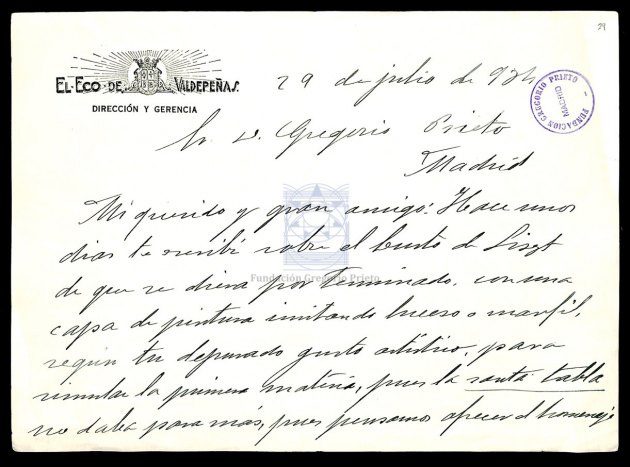 29
EL ECO DE VALDEPEÑAS.
DIRECCIÓN Y GERENCIA
29 de julio de 934
FUNDACION GREGORIO PRIETO - MADRID
Sr. D. Gregorio Prieto
Madrid
Mi querido y gran amigo: Hace unos
dias te escribí sobre el busto de Liszt
Fundación Gregorio Prieto
de que se diera por terminado, con una
capa de pintura imitando hueso o marfil,
según tu depurado gusto artístico, para
simular la primera materia, pues la santa tabla
no daba para más, pues pensamos ofrecer el homenaje